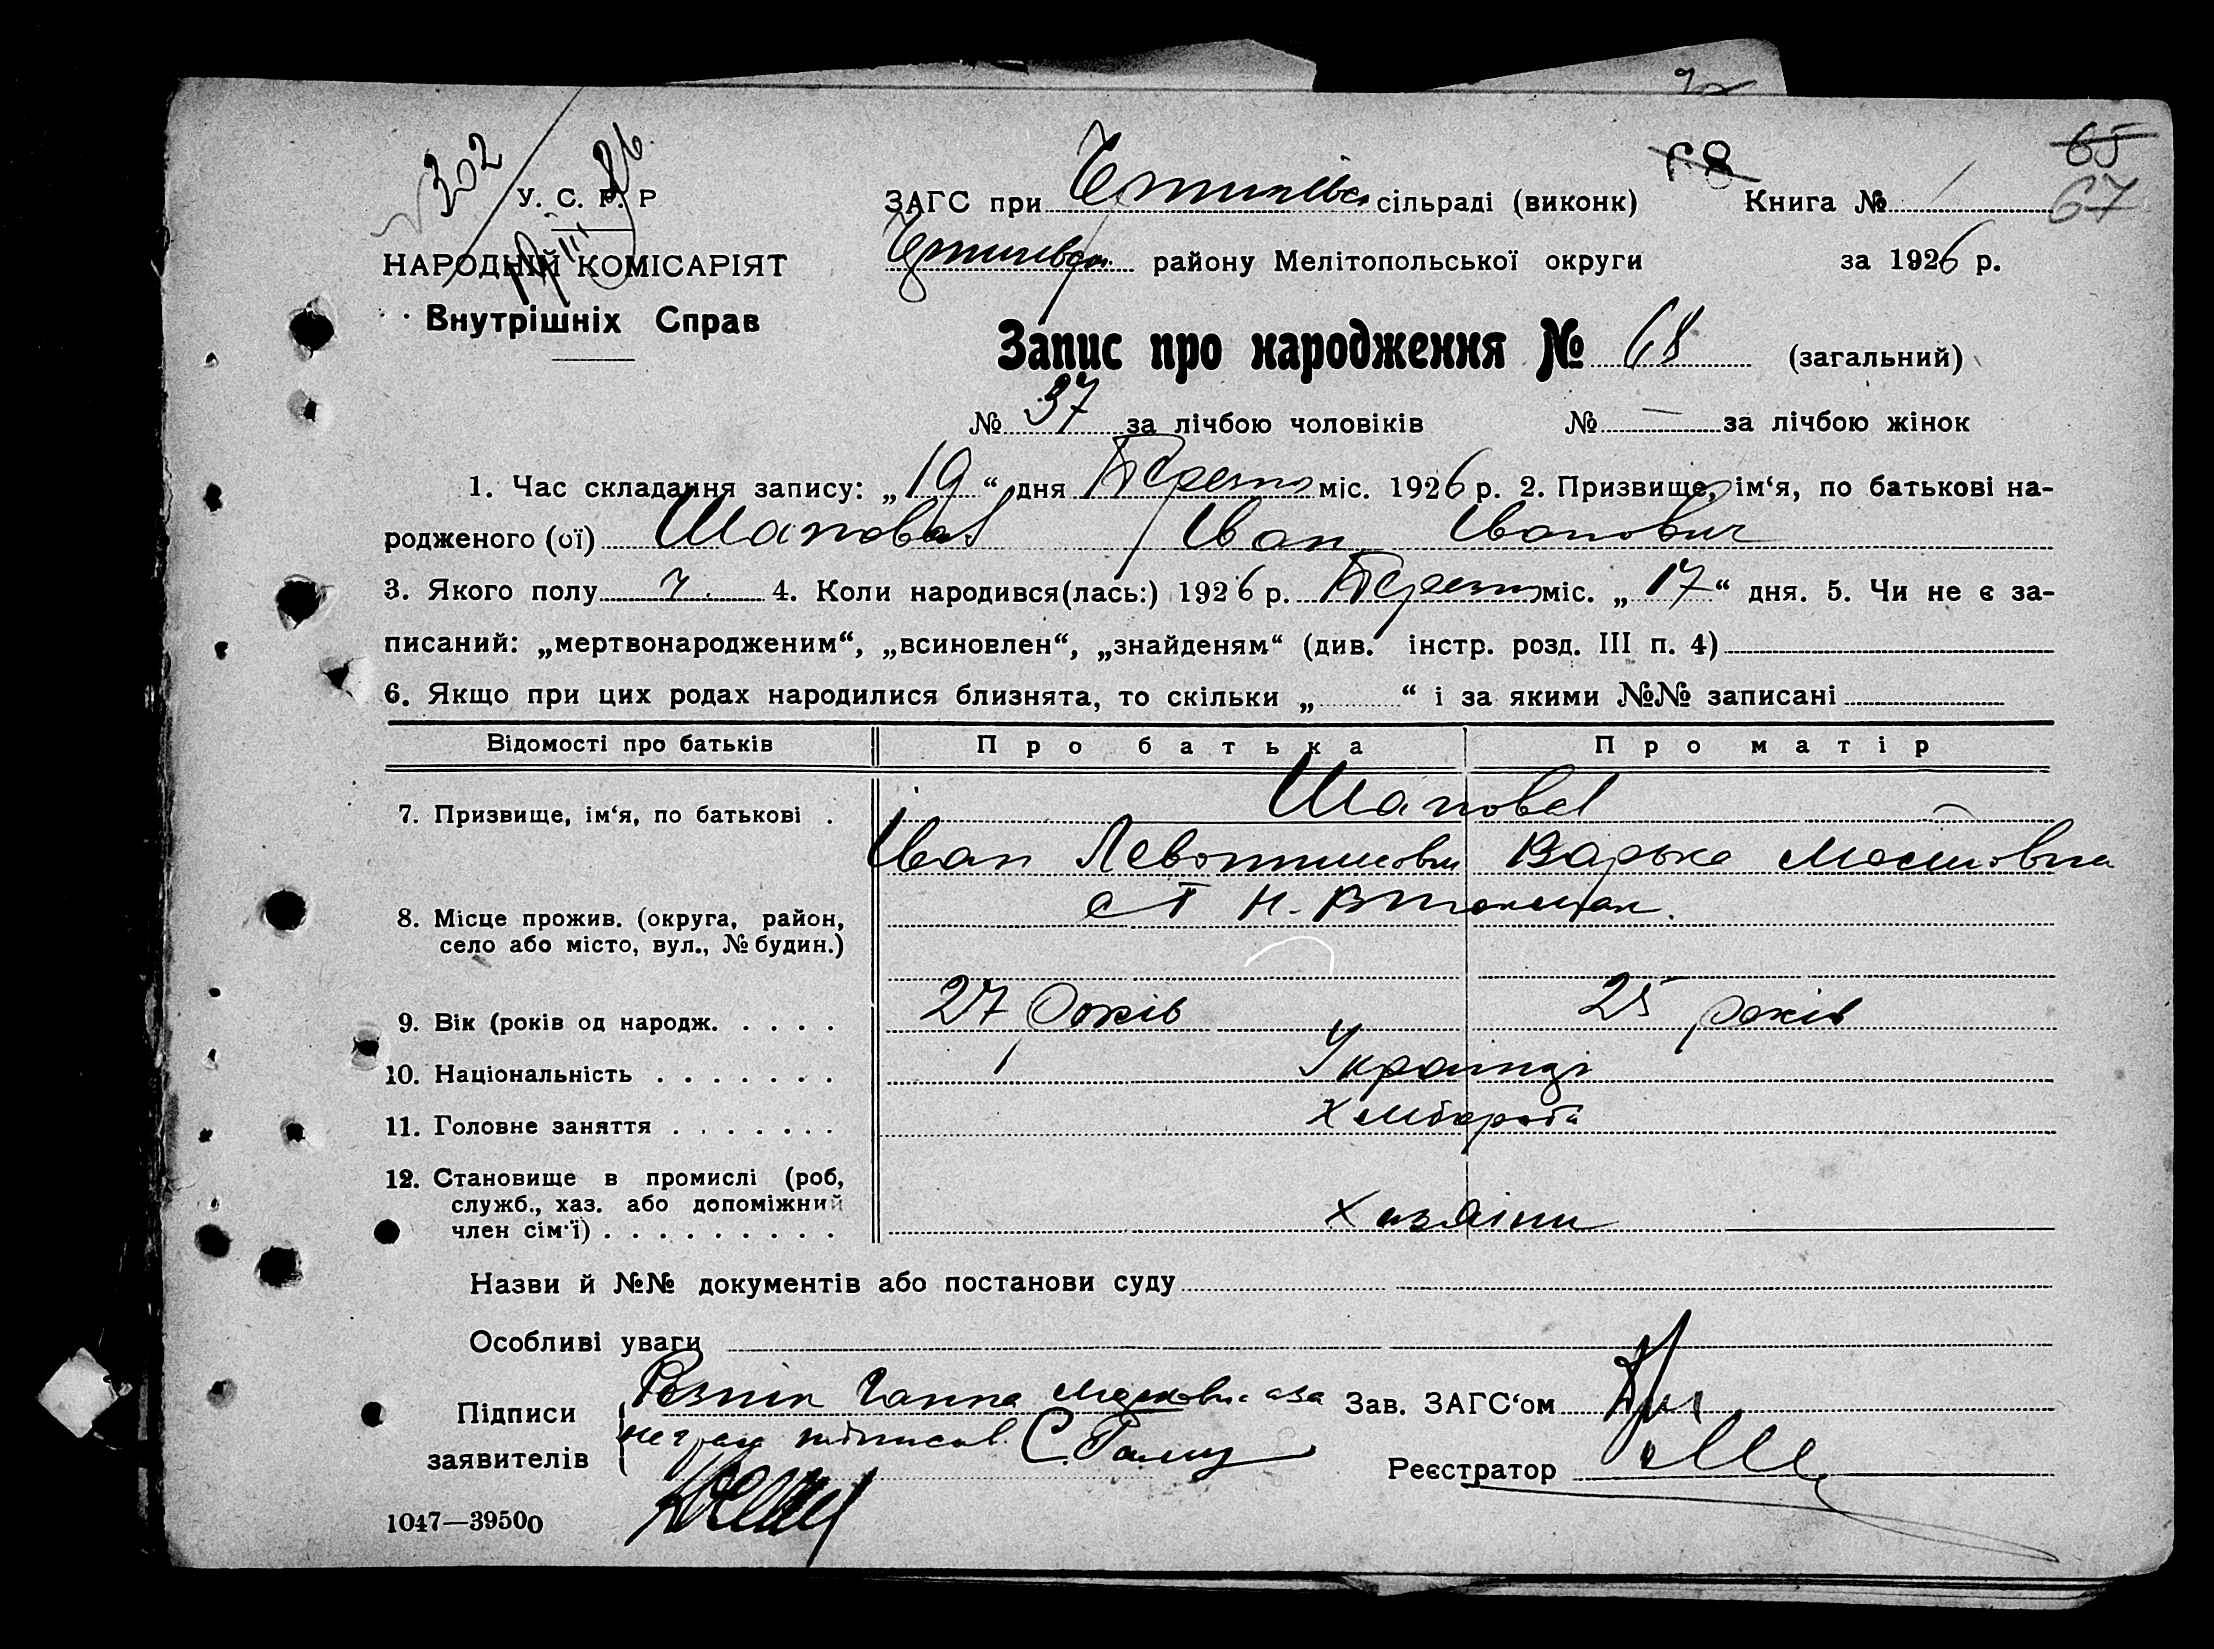 65
68
302
У. С. Р. Р
ЗАГС при сільраді (виконк) Книга №
67
НАРОДНІЙ КОМІСАРІЯТ
району Мелітопольської округи за 1926 р.
Внутрішніх Справ
Запис про народження № 68 (загальний)
№ 37 за лічбою чоловіків № — за лічбою жінок
1. Час складання запису: „19“ дня міс. 1926 р. 2. Призвище, ім‘я, по батькові на-
родженого (ої) Шаповал Іван Іванович
3. Якого полу ч. 4. Коли народився(лась:) 1926 р. міс. „17“ дня. 5. Чи не є за-
писаний: „мертвонародженим“, „всиновлен“, „знайденям“ (див. інстр. розд. III п. 4)
6. Якщо при цих родах народилися близнята, то скільки „ “ і за якими №№ записані
Відомості про батьків Про батька Про матір
7. Призвище, ім‘я, по батькові . Шаповал
Іван Варька
8. Місце прожив. (округа, район,
село або місто, вул., № будин.)
9. Вік (років од народж. . . . . 27 років 25 років
10. Національність . . . . . . . Українці
11. Головне заняття . . . . . . . Хлібороби
12. Становище в промислі (роб,
служб., хаз. або допоміжний
член сім‘ї) . . . . . . . . . Хазяїни
Назви й №№ документів або постанови суду
Особливі уваги
Ганна аза
Підписи Зав. ЗАГС‘ом
заявителів
Реєстратор
1047—39500